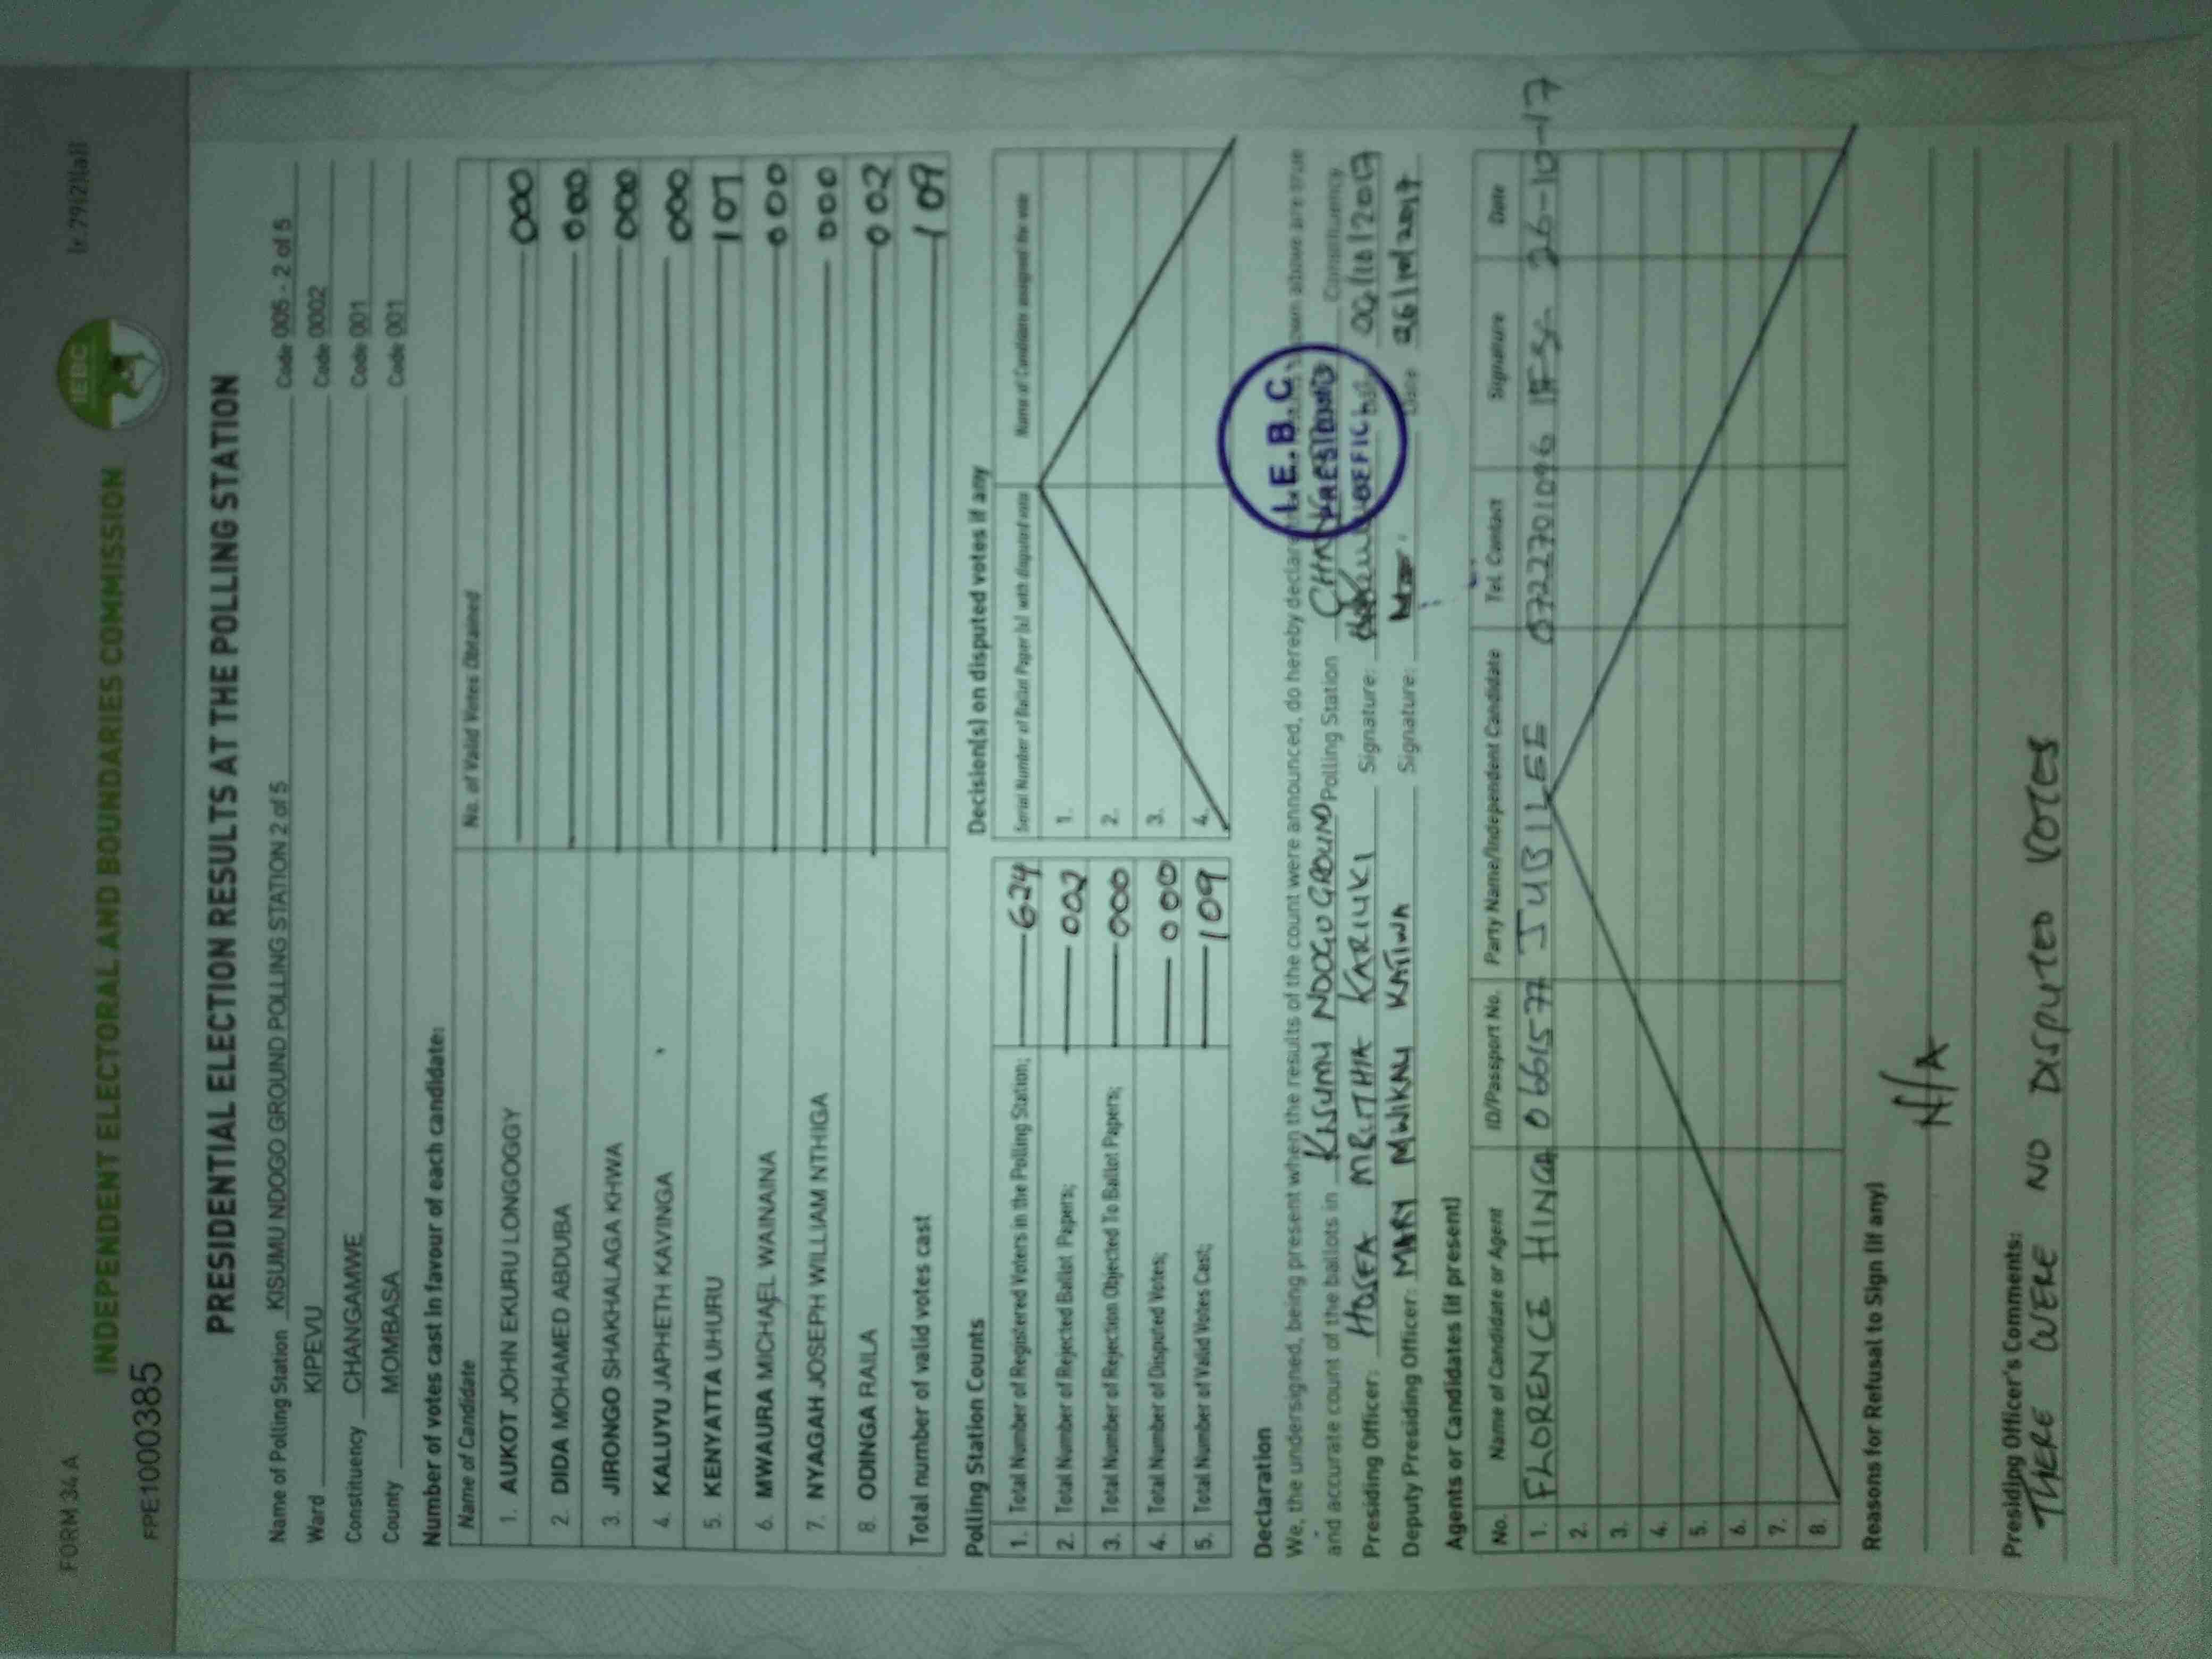 FORM 34 A
(r.79(2)(a))
INDEPENDENT ELECTORAL AND BOUNDARIES COMMISSION
IEBC
FPE1000385
PRESIDENTIAL ELECTION RESULTS AT THE POLLING STATION
Name of Polling Station KISUMU NDOGO GROUND POLLING STATION 2 of 5 Code 005 - 2 of 5
Ward KIPEVU Code 0002
Constituency CHANGAMWE Code 001
County MOMBASA Code 001
Number of votes cast in favour of each candidate:
Name of Candidate No. of Valid Votes Obtained
1. AUKOT JOHN EKURU LONGOGGY 000
2. DIDA MOHAMED ABDUBA 000
3. JIRONGO SHAKHALAGA KHWA 000
4. KALUYU JAPHETH KAVINGA 000
5. KENYATTA UHURU 107
6. MWAURA MICHAEL WAINAINA 000
7. NYAGAH JOSEPH WILLIAM NTHIGA 000
8. ODINGA RAILA 002
Total number of valid votes cast 109
Polling Station Counts
1. Total Number of Registered Voters in the Polling Station; 624
2. Total Number of Rejected Ballot Papers; 002
3. Total Number of Rejection Objected To Ballot Papers; 000
4. Total Number of Disputed Votes; 000
5. Total Number of Valid Votes Cast; 109
Decision(s) on disputed votes if any
Serial Number of Ballot Paper (s) with disputed vote Name of Candidate assigned the vote
1.
2.
3.
4.
Declaration
We, the undersigned, being present when the results of the count were announced, do hereby declare shown above are true
and accurate count of the ballots in KISUMU NDOGO GROUND Polling Station Constituency
Presiding Officer: HOSEA MRITHIA KARIUKI Signature:
Deputy Presiding Officer: MARY MWIKALI KATIWA Signature: Date 26/10/2017
I.E.B.C.
Agents or Candidates (if present)
No. Name of Candidate or Agent ID/Passport No. Party Name/Independent Candidate Tel. Contact Signature Date
1. FLORENCE HINGA 0661577 JUBILEE 0722701096 26-10-17
2.
3.
4.
5.
6.
7.
8.
Reasons for Refusal to Sign (if any)
N/A
Presiding Officer's Comments:
THERE WERE NO DISPUTED VOTES